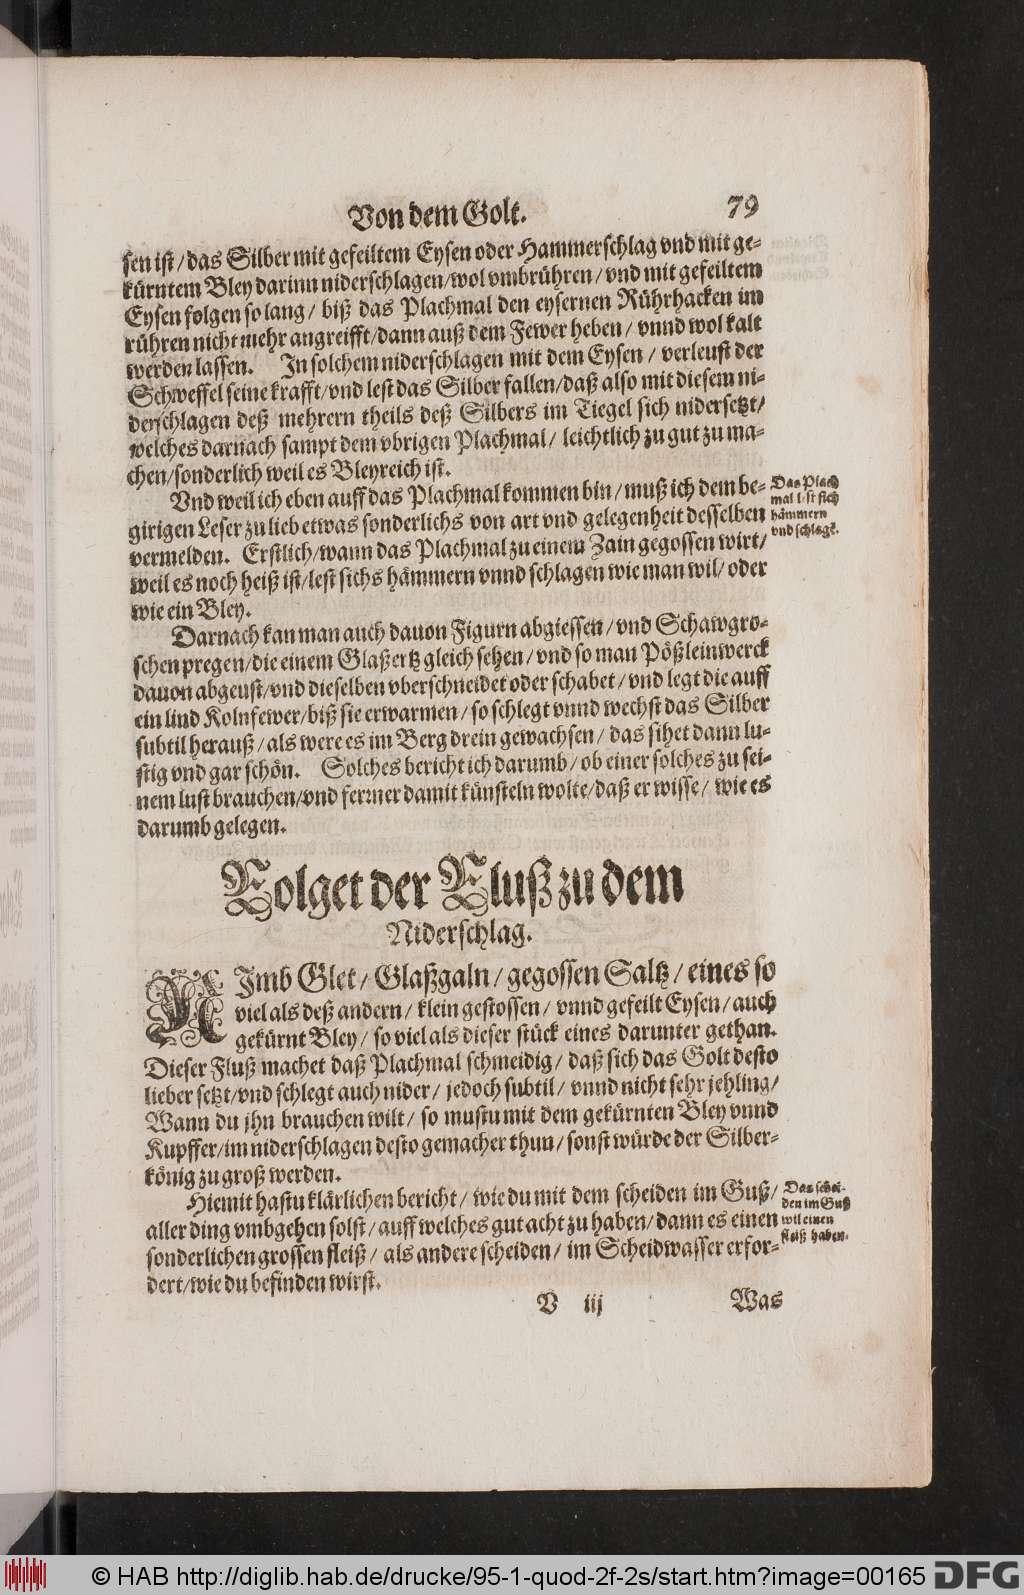 Von dem Golt.
79
sen ist / das Silber mit gefeiltem Eysen oder Hammerschlag vnd mit ge-
kürntem Bley darinn niderschlagen / wol vmbrühren / vnd mit gefeiltem
Eysen folgen so lang / biß das Plachmal den eysernen Rührhacken im
rühren nicht mehr angreifft / dann auß dem Fewer heben / vnnd wol kalt
werden lassen. In solchem niderschlagen mit dem Eysen / verleust der
Schweffel seine krafft / vnd lest das Silber fallen / daß also mit diesem ni-
derschlagen deß mehrern theils deß Silbers im Tiegel sich nidersetzt /
welches darnach sampt dem vbrigen Plachmal / leichtlich zu gut zu ma-
chen / sonderlich weil es Bleyreich ist.
Vnd weil ich eben auff das Plachmal kommen bin / muß ich dem be-
girigen Leser zu lieb etwas sonderlichs von art vnd gelegenheit desselben
vermelden. Erstlich / wann das Plachmal zu einem Zain gegossen wirt /
weil es noch heiß ist / lest sichs hämmern vnnd schlagen wie man wil / oder
wie ein Bley.
Das Plach
mal lest sich
hämmern
vnd schlagē.
Darnach kan man auch dauon Figurn abgiessen / vnd Schawgro-
schen pregen / die einem Glaßertz gleich sehen / vnd so man Pößleinwerck
dauon abgeust / vnd dieselben vberschneidet oder schabet / vnd legt die auff
ein lind Kolnfewer / biß sie erwarmen / so schlegt vnnd wechst das Silber
subtil herauß / als were es im Berg drein gewachsen / das sihet dann lu-
stig vnd gar schön. Solches bericht ich darumb / ob einer solches zu sei-
nem lust brauchen / vnd ferrner damit künsteln wolte / daß er wisse / wie es
darumb gelegen.
Folget der Fluß zu dem
Niderschlag.
NImb Glet / Glaßgaln / gegossen Saltz / eines so
viel als deß andern / klein gestossen / vnnd gefeilt Eysen / auch
gekürnt Bley / so viel als dieser stück eines darunter gethan.
Dieser Fluß machet daß Plachmal schmeidig / daß sich das Golt desto
lieber setzt / vnd schlegt auch nider / jedoch subtil / vnnd nicht sehr jehling /
Wann du jhn brauchen wilt / so mustu mit dem gekürnten Bley vnnd
Kupffer / im niderschlagen desto gemacher thun / sonst würde der Silber-
könig zu groß werden.
Hiemit hastu klärlichen bericht / wie du mit dem scheiden im Guß /
aller ding vmbgehen solst / auff welches gut acht zu haben / dann es einen
sonderlichen grossen fleiß / als andere scheiden / im Scheidwasser erfor-
dert / wie du befinden wirst.
Das schei-
den im Guß
wil einen
fleiß haben.
V iij
Was
© HAB http://diglib.hab.de/drucke/95-1-quod-2f-2s/start.htm?image=00165
DFG